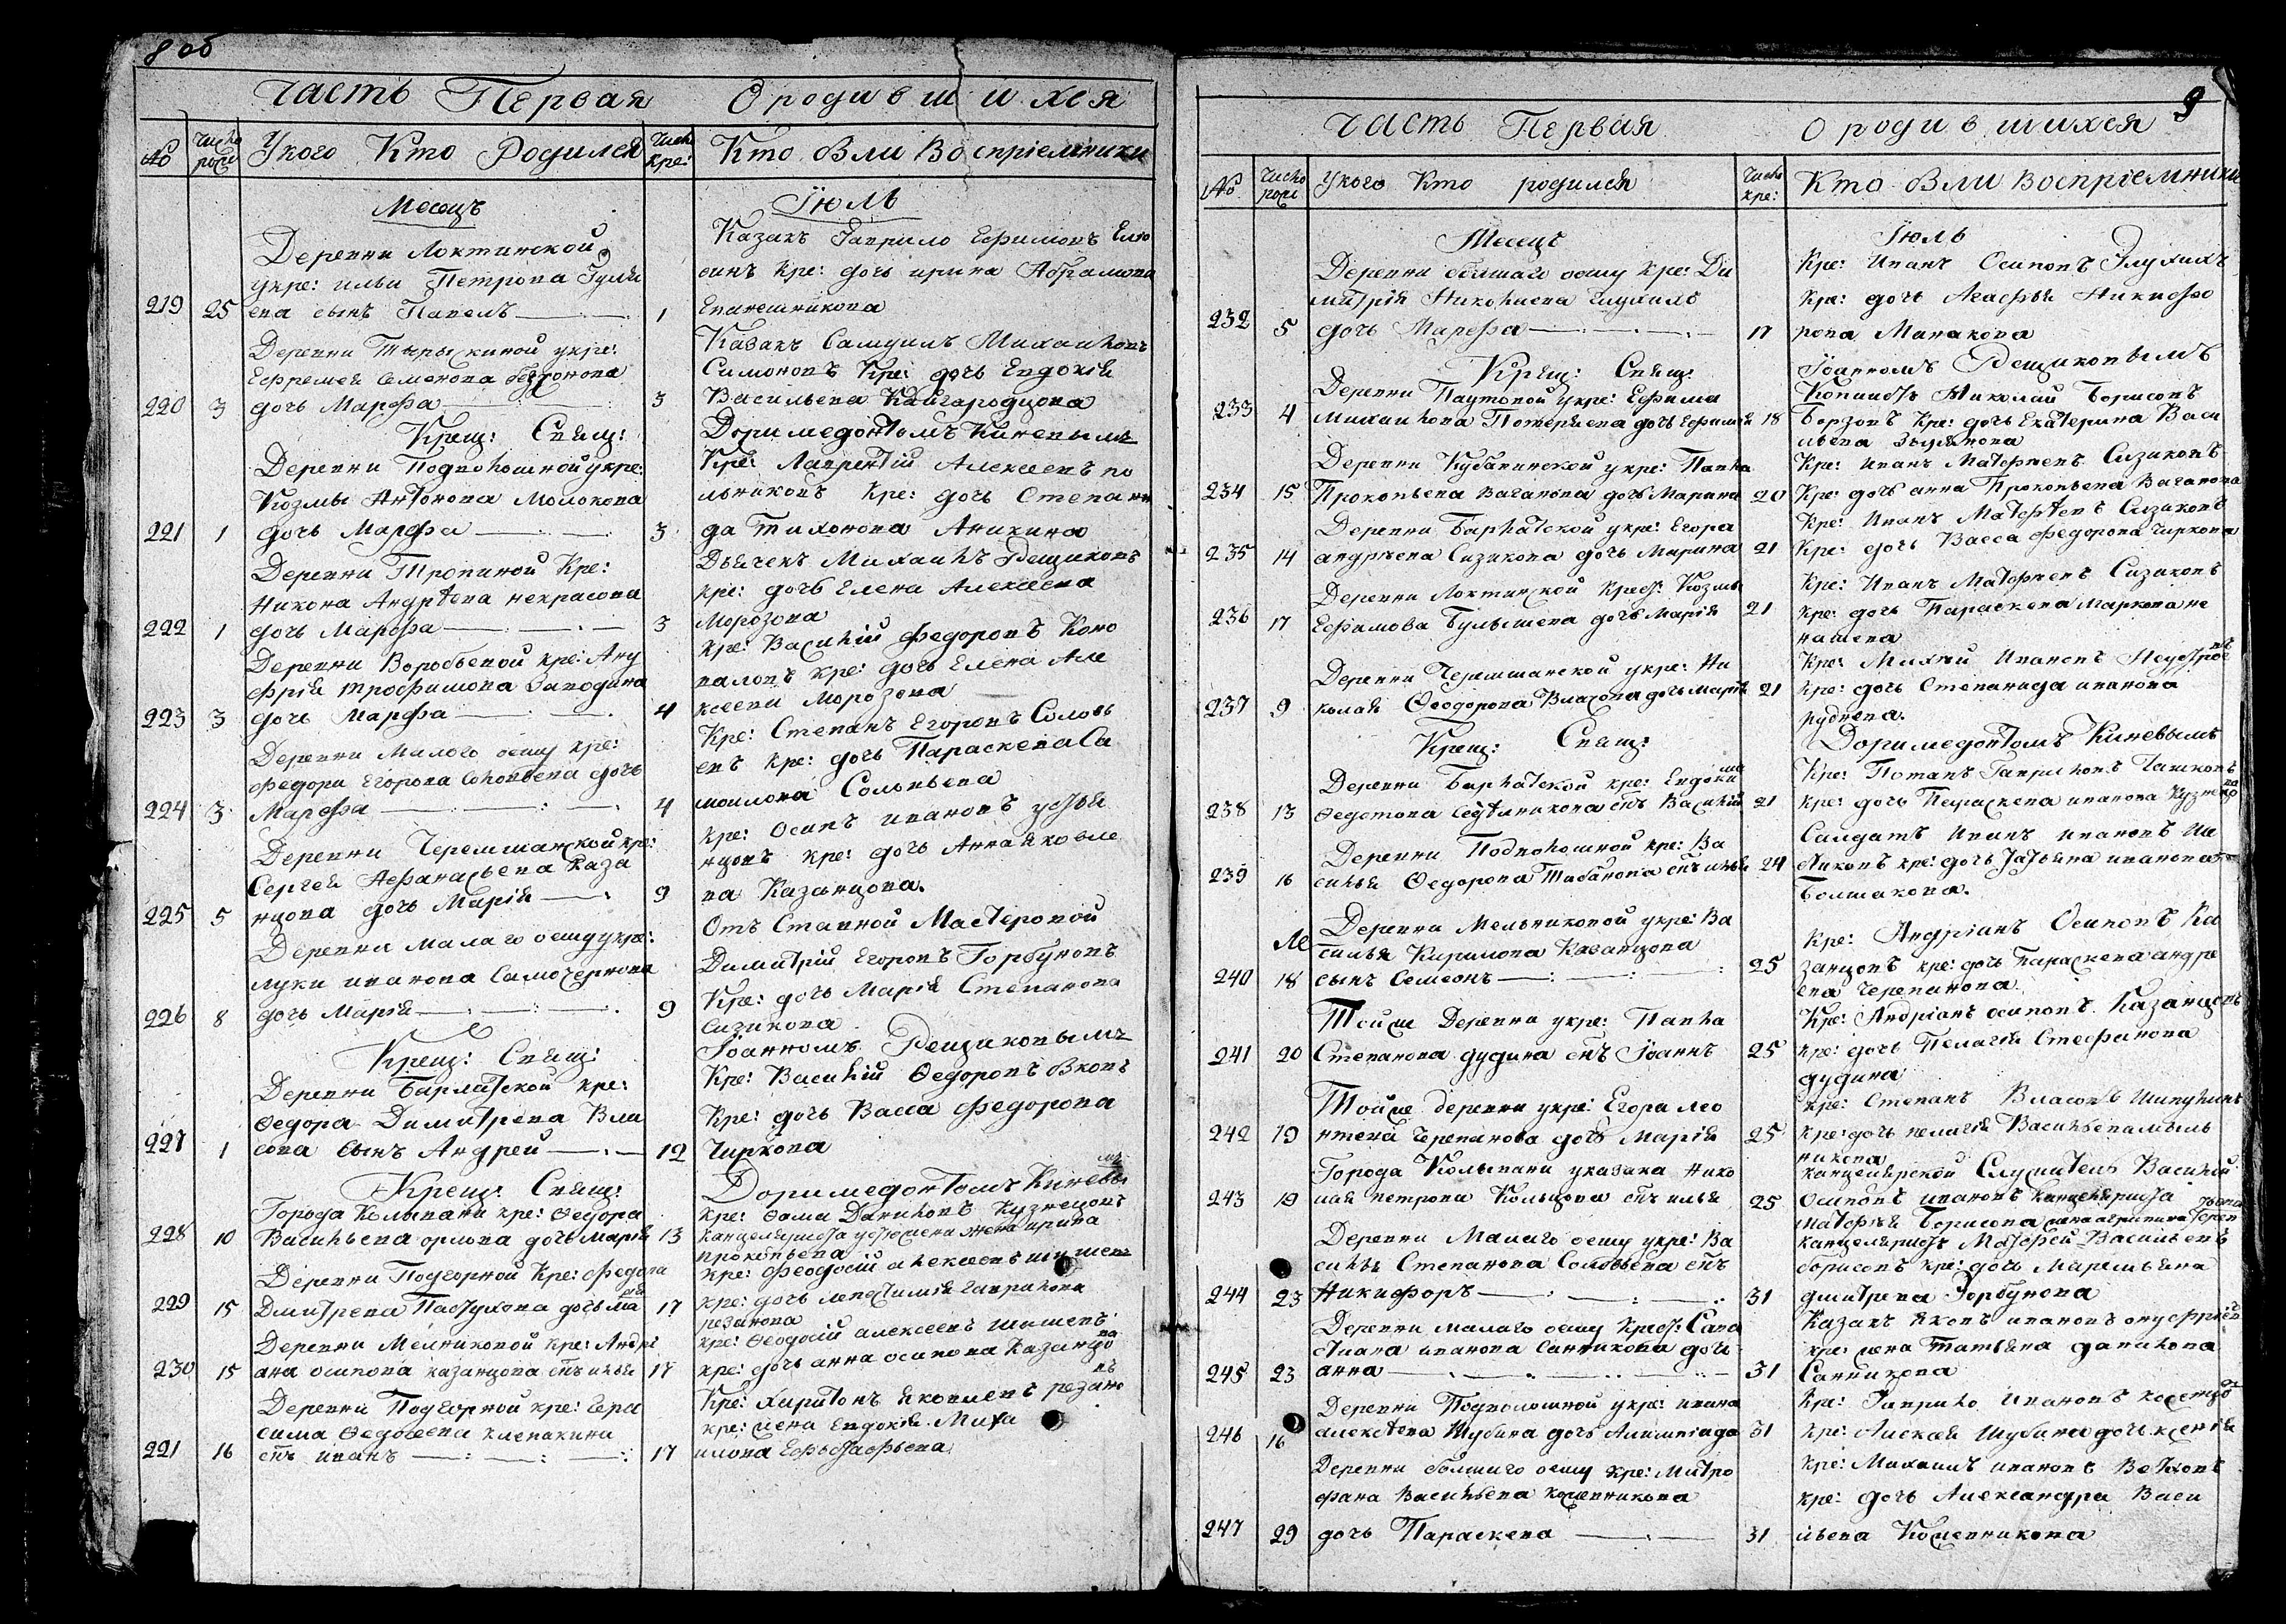 8 об
Часть Первая О родившихся
№ Число роде Укого Кто Родился Число кре: Кто Были Восприемники
Месецъ Июль
Деревни Локтинской
укре: ильи Петрова Гуляе
219 25 ева сынъ Павелъ 1
Казакъ Гаврило Ефимовъ
кре: дочь ирина Абрамова
Деревни Тырышкиной укре:
Ефремея Семенова
220 3 дочь Марфа 3
Казакъ Самуилъ Михаиловъ
Симоновъ Кре: дочь Евдокия
Васильева Кайгородцова
Крещ: Свящ: Доримедонтомъ Киневымъ
Деревни Подволошной укре:
Козмы Антонова Молокова
221 1 дочь Марфа 3
Кре: Лаврентий Алексеевъ по
льниковъ Кре: дочь Степани
да Тихонова Аникина
Деревни Тропиной Кре:
Никона Андреева некрасова
222 1 дочь Марфа 3
Дьячекъ Михаилъ Рещиковъ
кре: дочь Елена Алексеева
Морозова
Деревни Воробьевой кре: Ану
фрия трофимова Заводина
223 3 дочь Марфа 4
кре: Василий Федоровъ Коно
валовъ кре: дочь Елена Але
ксеева Морозова
Деревни Малого оешу кре:
федора Егорова Соловьева дочь
224 3 Марфа 4
Кре: Степанъ Егоровъ Соловь
евъ кре: дочь Параскева Са
моилова Соловьева
Деревни Черемшанской кре:
Сергея Афанасьева Каза
225 5 нцова дочь Мария 9
кре: Осипъ ивановъ устья
нцовъ кре: дочь Анна яковле
ва Казанцова.
Деревни малаго оешу укре:
луки иванова Самочернова
226 8 дочь Мария 9
Отъ Ставной Мастеровой
Димитрий Егоровъ Горбуновъ
Кре: дочь Мария Степанова
Сизикова
Крещ: Свящ: Иоанномъ Рещиковымъ
Деревни Барлатской кре:
Федора Димитрева Вла
227 1 сова сынъ Андрей 12
Кре: Василий Федоровъ
Кре: дочь Васса федорова
Чиркова
Крещ: Свящ: Доримедонтомъ Киневымъ
Города Колывани кре: Федора
228 10 Васильева орлова дочь Мария 13
кре: Фома Даниловъ Кузнецовъ
канцеляриста жена ирина
прокопьева
Деревни Подгорной Кре: федора
229 15 Дмитрева Пастухова дочь Мария 17
кре: феодосий алексеевъ шишевъ
кре: дочь гаврилова
резанова
Деревни Мелниковой кре: Андри
230 15 ана осипова казанцова снъ илья 17
кре: Феодосий алексеевъ шишевъ
кре: дочь анна осипова Казанцова
Деревни Подгорной кре: Гера
сима Федосеева клепакина
221 16 снъ иванъ 17
Кре: Харитонъ яковлевъ резановъ
кре: жена Евдокия Миха
илова Ефьстафьева
9
Часть Первая О родившихся
№ Число роде Укого Кто родился Число кре: Кто Были Восприемники
Месецъ Июль
Деревни болшаго оешу Кре: Ди
митрия Николаева глухихъ
232 5 дочь Марфа 17
Кре: Иванъ Осиповъ Глухихъ
кре: дочь Агафья Никифо
рова Манакова
Крещ: Свящ: Иоанномъ Рещиковымъ
Деревни Паутовой укре: Ефима
233 4 михаилова Потеряева дочь Ефимия 18
Копиистъ Николай Борисовъ
Борзовъ Кре: дочь Екатерина Васи
льева Зырянова
Деревни Кубавинской укре: Павла
234 15 Прокопьева Ваганова дочь Марина 20
Кре: Иванъ Матфеевъ Сизиковъ
Кре: дочь анна Прокопьева Ваганова
Деревни Барлатской укре: Егора
235 14 андреева Сизикова дочь Марина 21
Кре: Иванъ Матфеевъ Сизиковъ
Кре: дочь Васса федорова чиркова
Деревни Локтинской Крест: Козмы
236 17 Ефимова Булышева дочь Мария 21
Кре: Иванъ Матфеевъ Сизиковъ
кре: дочь Параскева Маркова не
нашева
Деревни Черемшанской укре: Ни
237 9 колая Феодорова Власова дочь Мария 21
Кре: Михей Ивановъ Неустроевъ
кре: дочь Степанида иванова
руднева.
Крещ: Свящ: Доримедонтомъ Киневымъ
Деревни Барлатской кре: Евдокима
238 13 Федотова Сотникова снъ Василий 21
Кре: Потапъ Гавриловъ Чашковъ
кре: дочь Параскева иванова Кузнецова
Деревни Подволошной кре: Ва
239 16 силья Федорова Табанова снъ илья 24
Салдатъ Иванъ ивановъ
кре: дочь Татьяна иванова
Болшакова.
Деревни Мельниковой укре: Ва
силья Кирилова Казанцова
240 18 сынъ Семеонъ 25
Кре: Андрианъ Осиповъ Ка
занцовъ кре: дочь Параскева андре
ева черепанова.
Тойже Деревни укре: Павла
241 20 Степанова дудина снъ Иоаннъ 25
Кре: Андрианъ осиповъ Казанцовъ
кре: дочь Пелагия Стефанова
дудина
Тойже деревни укре: Егора лео
242 19 нтева черепанова дочь Мария 25
кре: Степанъ Власовъ Шипулинъ
кре: дочь пелагия Васильева мыль
никова
Города Колывани указака Нико
243 19 лая петрова Кольцова снъ илья 25
Канцелярской Служитель Василий
Осиповъ ивановъ канцеляриста
Матфея Борисова жена агрипина
Деревни Малаго оешу укре: Ва
силья Степанова Соловьева снъ
244 23 Никифоръ 31
канцеляристъ Матфей Васильевъ
борисовъ кре: дочь Маремьяна
дмитрева Горбунова
Деревни малаго оешу Крест: Сава
стиана иванова Санникова дочь
245 23 анна 31
Казакъ яковъ ивановъ онуфриевъ
кре: жена Татьяна данилова
Санникова
Деревни Подволошной укре: ивана
246 16 алексеева Шубина дочь Алимпиада 31
Кре: Гаврило Ивановъ
кре: Алексея Шубина дочь ксения
Деревни болшаго оешу кре: Митро
фана Васильева кожевникова
247 29 дочь Параскева 31
кре: Михаилъ ивановъ Ветховъ
кре: дочь Александра Васи
льева Кожевникова